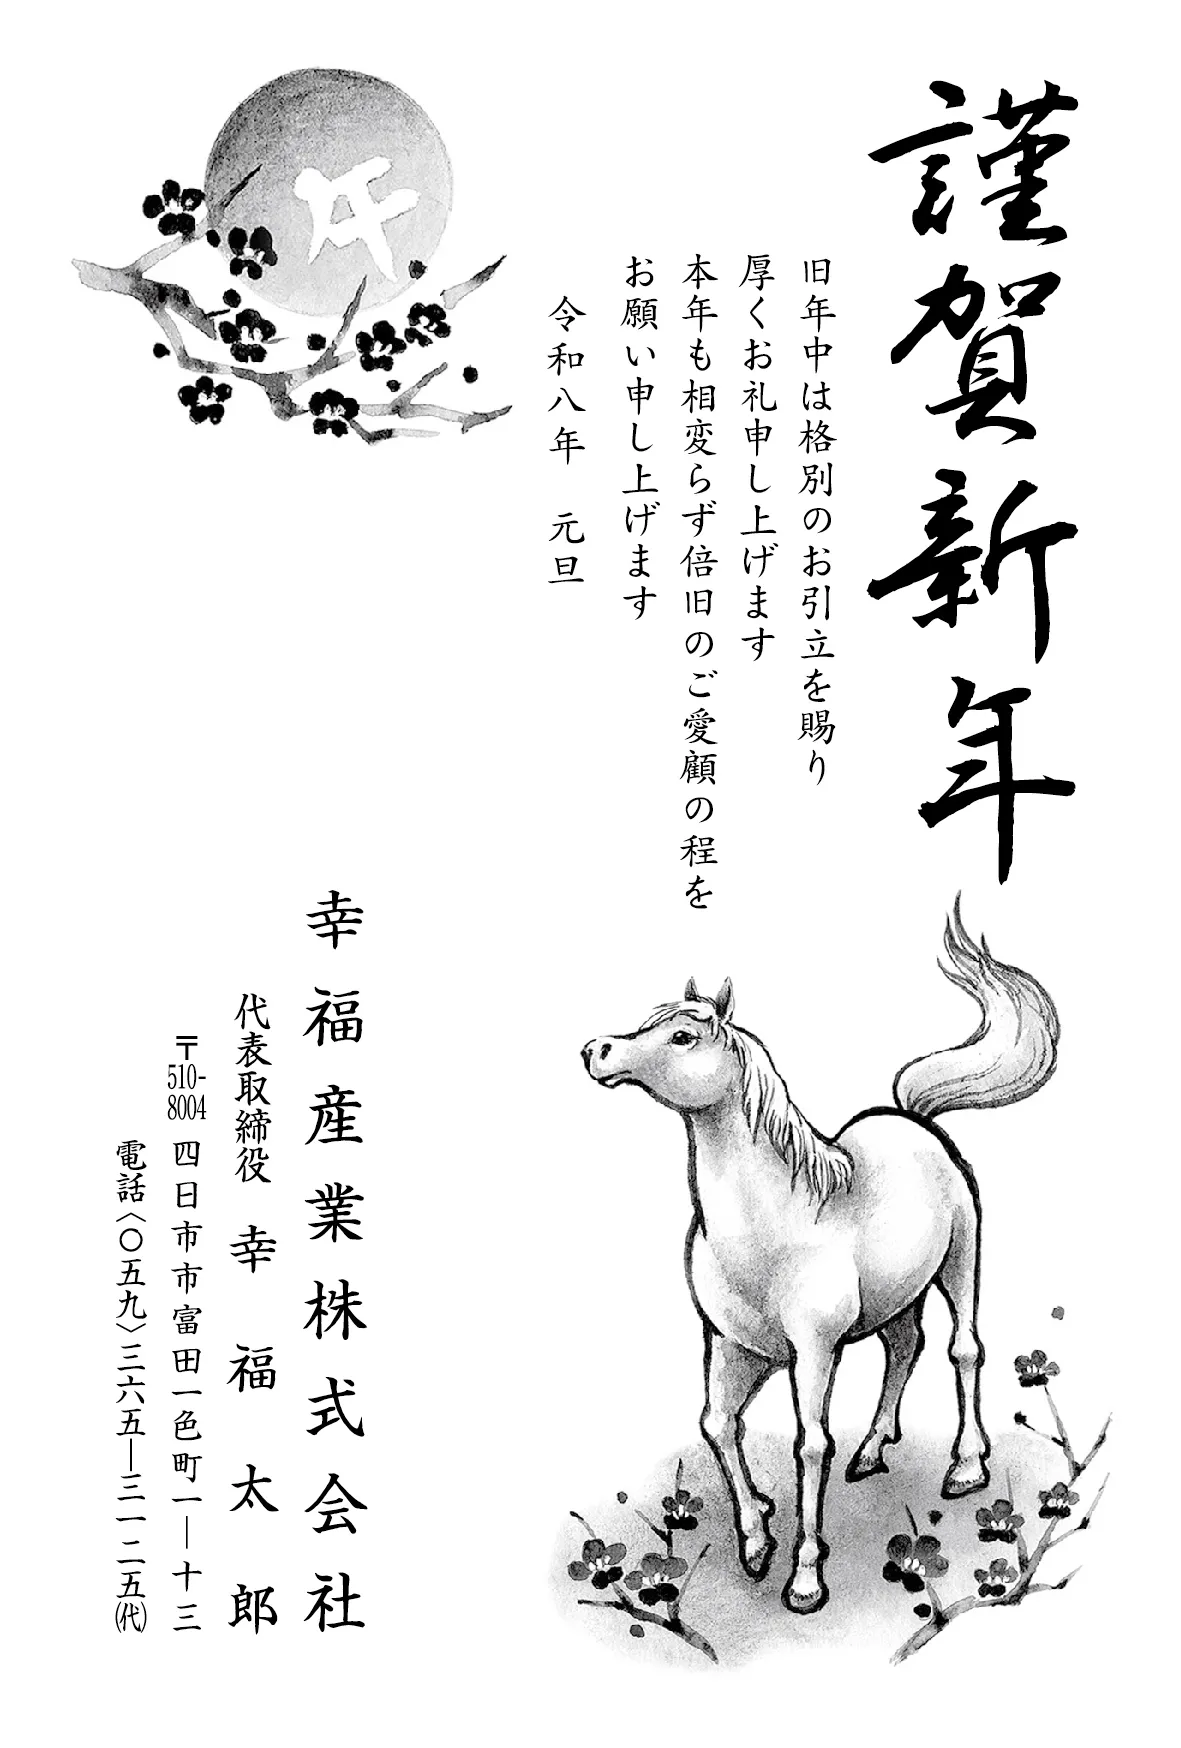 謹賀新年
旧年中は格別のお引立を賜り
厚くお礼申し上げます
本年も相変らず倍旧のご愛顧の程を
お願い申し上げます
令和八年 元旦
幸福産業株式会社
代表取締役 幸福太郎
〒510-8004 四日市市富田一色町一―十三
電話〈〇五九〉三六五―三一二五(代)